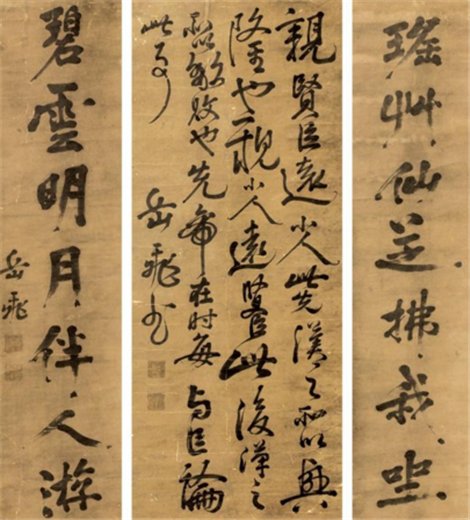 瑤艸仙芝拂我坐
親賢臣遠小人此先漢之所以興
隆也親小人遠賢臣此後漢之
所以傾敗也先帝在时每与臣論
此事
岳飛书
碧雲明月伴人游
岳飛